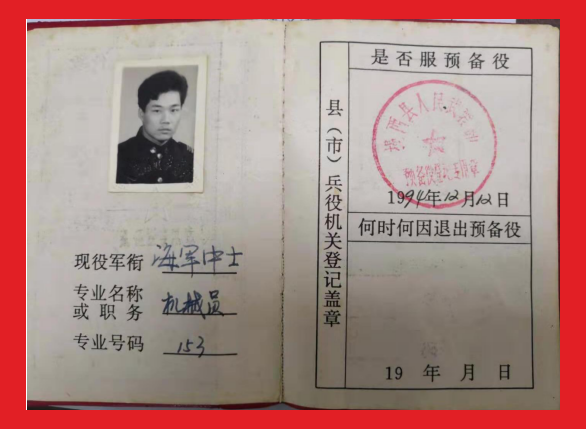 现役军衔 海军中士
专业名称
或职务 机械员
专业号码 153
县（市）兵役机关登记盖章
是否服预备役
县人民武装部
1994年12月12日
何时何因退出预备役
19 年 月 日